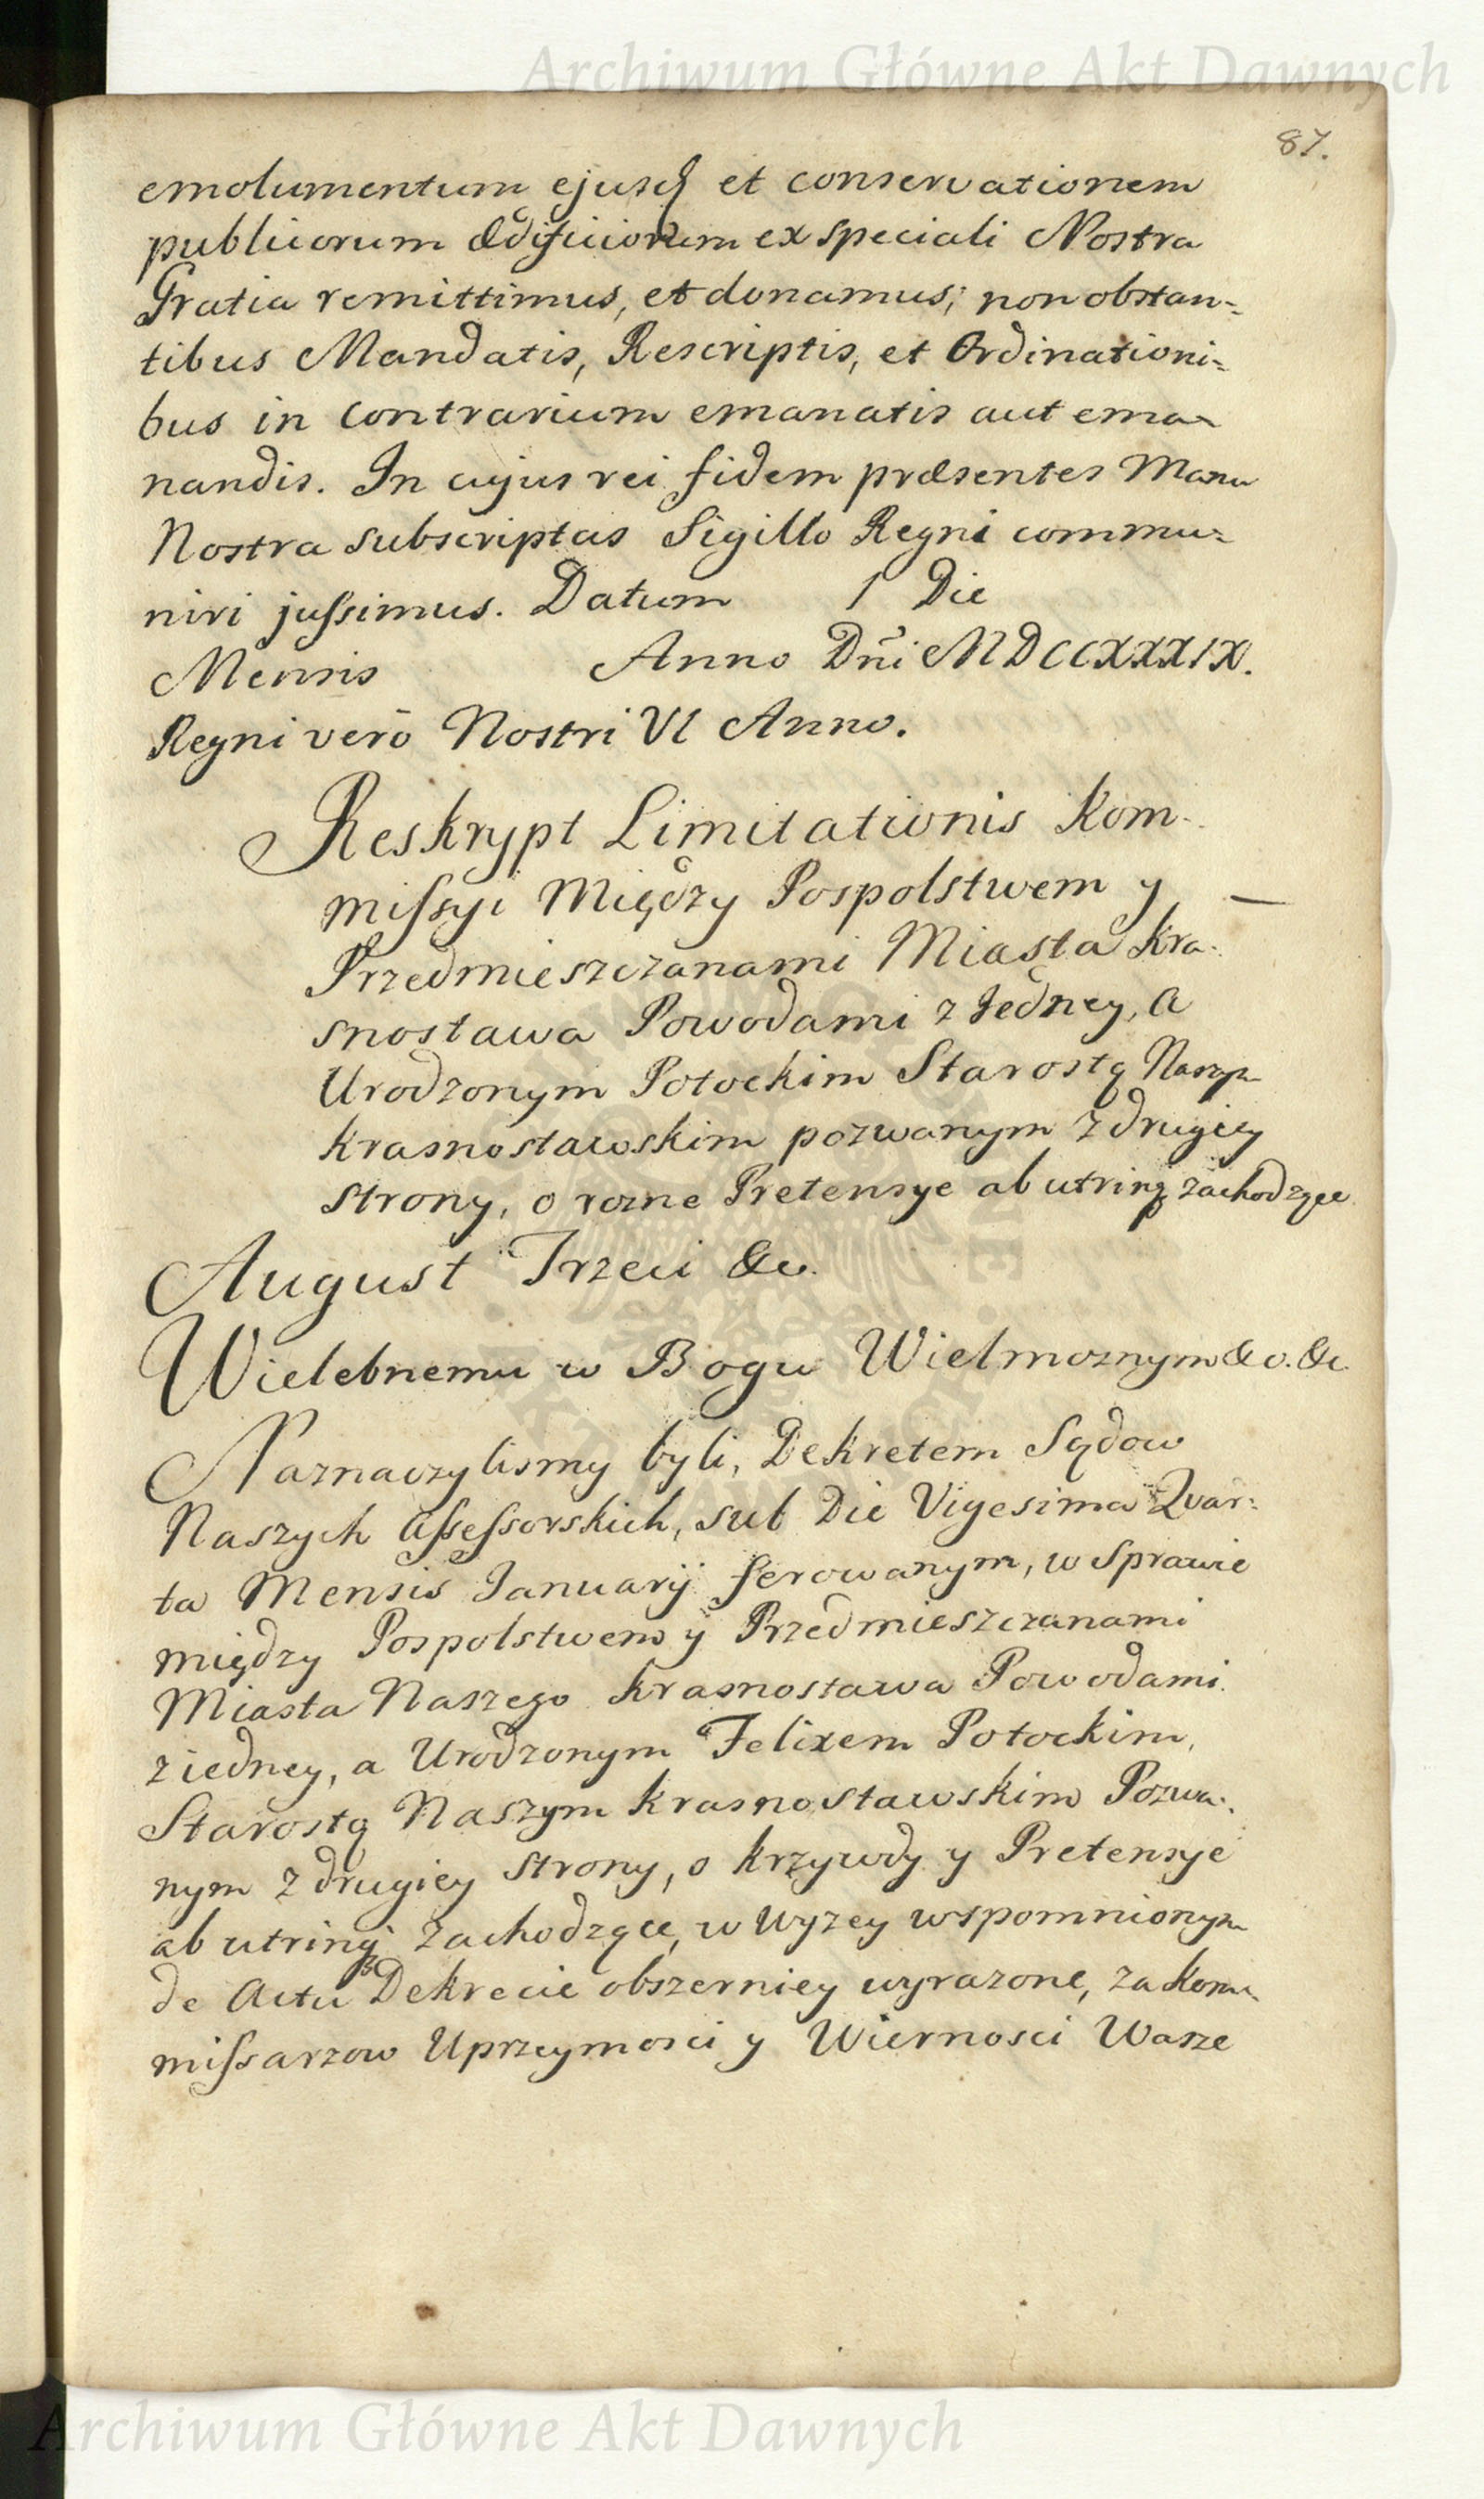 Archiwum Główne Akt Dawnych
87.
emolumentum ejusq et conservationem
publicorum ædificiorum ex speciali Nostra
Gratia remittimus, et donamus; non obstan=
tibus Mandatis, Rescriptis, et Ordinationi=
bus in contrarium emanatis aut ema=
nandis. In cujus rei fidem præsentes Manu
Nostra subscriptas Sigillo Regni commu=
niri jussimus. Datum / Die
Mensis Anno Dñi MDCCXXXIX.
Regni verò Nostri VI Anno.
Reskrypt Limitationis Kom-
missyi Między Pospolstwem y
Przedmieszczanami Miasta Kra-
snostawa Powodami z Jedney, a
Urodzonym Potockim Starostą Naszym
Krasnostawskim pozwanym z drugiey
strony, o rozne Pretensye ab utrinq zachodzące
August Trzeci &c.
Wielebnemu w Bogu Wielmoznym &c. &c.
Naznaczylismy byli, Dekretem Sądow
Naszych Assessorskich, sub Die Vigesima Quar=
ta Mensis Januarij ferowanym, w Sprawie
między Pospolstwem ÿ Przedmieszczanami
Miasta Naszego Krasnostawa Powodami
z iedney, a Urodzonym Felixem Potockim,
Starostą Naszym Krasnostawskim Pozwa-
nym z drugiey Strony, o krzywdy y Pretensye
ab utrinq zachodzące, w wyzey wspomnionym
de Actu Dekrecie obszerniey wyrazone, za Kom-
missarzow Uprzeymosci y Wiernosci Wasze
Archiwum Główne Akt Dawnych